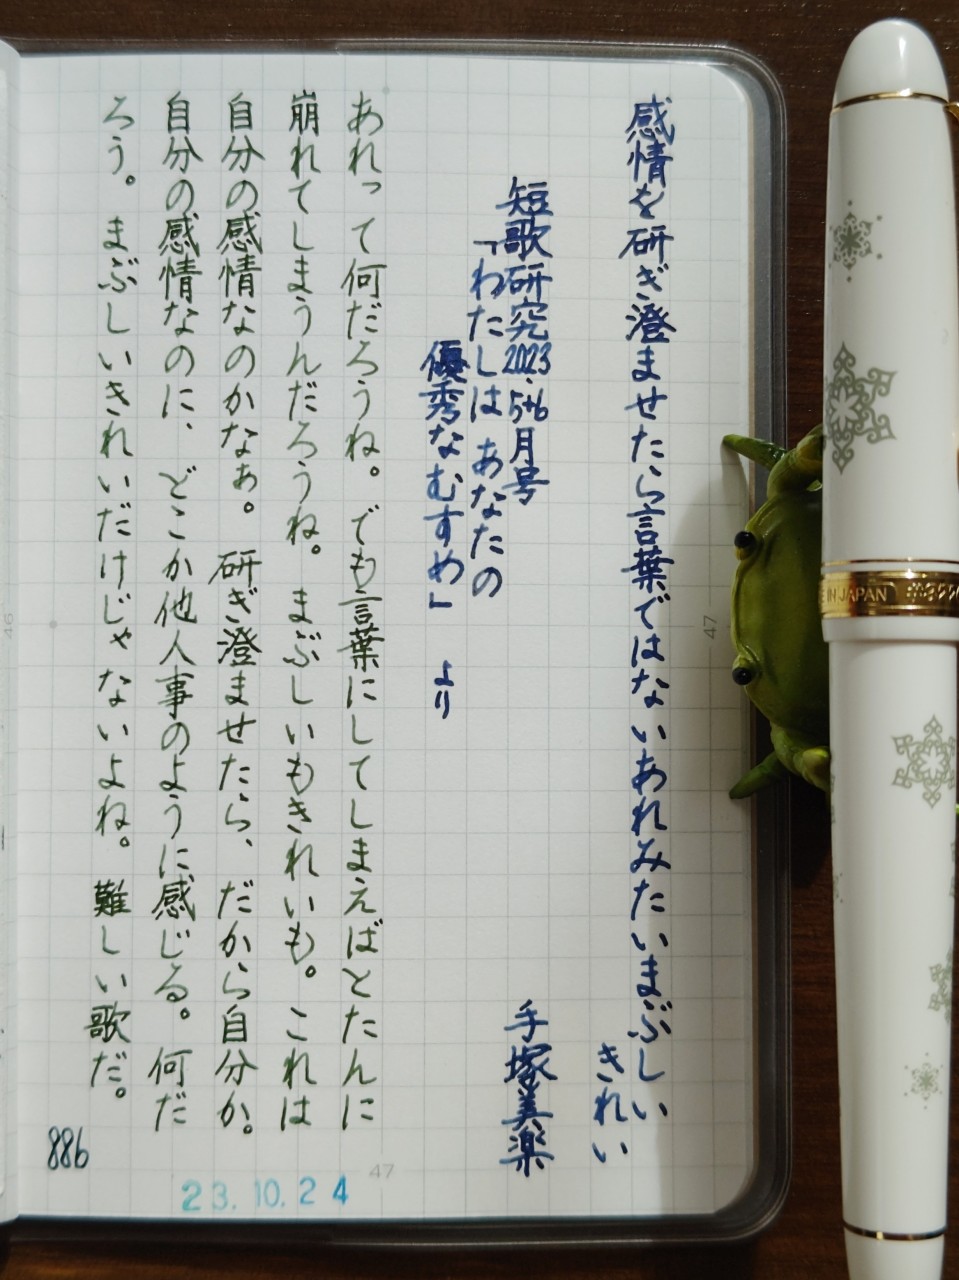 感情を研ぎ澄ませたら言葉ではないあれみたいまぶしい
きれい
短歌研究2023.5+6月号
手塚美楽
「わたしは あなたの
優秀なむすめ」 より
あれって何だろうね。でも言葉にしてしまえばとたんに
崩れてしまうんだろうね。まぶしいもきれいも。これは
自分の感情なのかなぁ。研ぎ澄ませたら、だから自分か。
自分の感情なのに、どこか他人事のように感じる。何だ
ろう。まぶしいきれいだけじゃないよね。難しい歌だ。
886
23.10.24
47
47
46
IN JAPAN